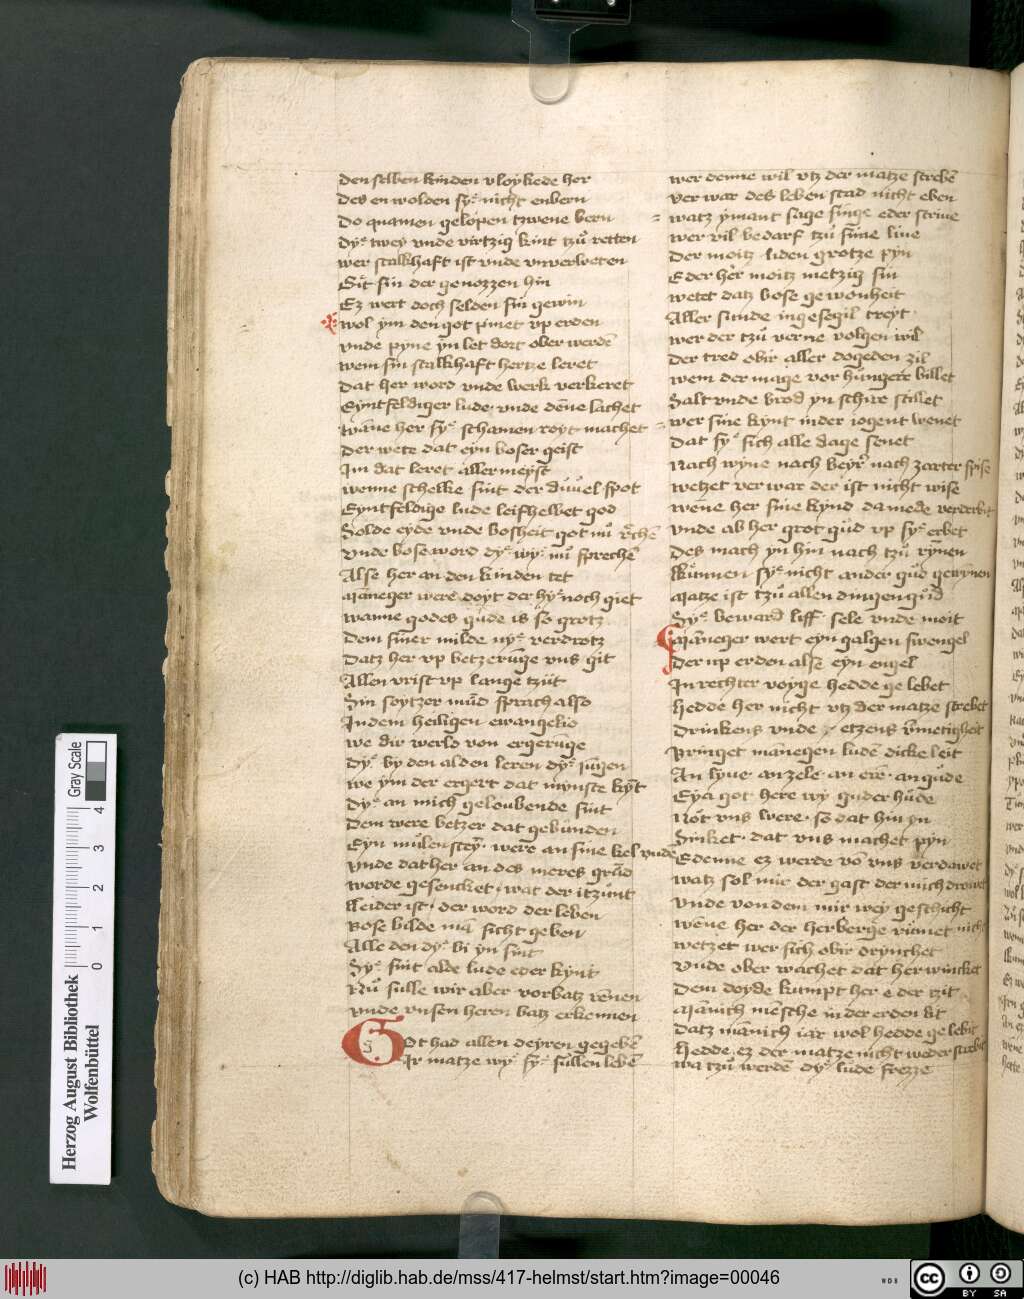 den selben kinden vloykede her
Des en wolden sy nicht enbern
Do quamen gelopen tzwene bern
Dy twey vnde virtzig kint tzů retten
wer stalkhaft ist vnde vnverweten
Git sin der genozzen hin
Ez wert doch selden sin gewin
wol ym den got pinet vp erden
vnde pyne yn let dort ober werdē
wem sin stalkhaft hertze leret
Dat her word vnde werk verkeret
Eyntfeldiger lude vnde dēne lachet
wāne her sy schamen royt machet
Der wete dat eyn boser geist
Im dat leret aller meyst
wenne schelke sint der duuel spot
Eyntfeldige lude leifhelbet god
Solde eyde vnde bosheit got nů
vnde bose word dy wy nů sprechē
Alse her an den kinden tet
Māneger were doyt der hy noch giet
wanne godes gude is so grotz
Dem siner milde ny verdrotz
Datz her vp betzerūge vns git
Allen vrist vp lange tzijt
Sin soytzer mūd sprach also
In dem heiligen ewangelio
we dir werld von ergerūge
Dy by den alden leren dy jūgen
we ym der ergert dat mynste kyt
Dy an mich geloubende sint
Dem were betzer dat gebunden
Eyn můlensteÿ were an sine kel vnde
vnde dat her an des meres grūd
worde gesencket wat der itzunt
Leider ist der word der leben
Bose bilde mā sicht geben
Alle den dy bi yn sint
Sy sint alde lude eder kynt
Nů sulle wir aber vorbatz rēnen
vnde vnsen heren batz erkennen
Got had allen deyren gegebē
Ir matze wy sy sullen lebē
wer denne wil vtz der matze strebē
ver war des leben stad nicht eben
watz ymant sage singe eder scriue
wer vil bedarf tzů sine liue
Der moitz liden grotze pyn
Eder her moitz metzig sin
wetet datz bose gewonheit
Aller sunde ingesegil treyt
wer der tzů verne volgen wil
Der tred obir aller dogeden zil
wem der mage vor hungere billet
Salt vnde brod yn schire stillet
wer sine kynt in der iogent wenet
Dat sy sich alle dage senet
Nach wyne nach beyr nach zarter spise
wetzet ver war der ist nicht wise
wene her sine kynd da mede verderbit
vnde ab her grot gůd vp sy erbet
Des mach yn hin nach tzů rynen
Kůnnen sy nicht ander gůd gewynen
Matze ist tzů allen dingen gůd
Sy beward liff sele vnde moit
Māneger wert eyn galgen swengel
Der up erden alse eyn engel
In rechter voyge hedde gelebet
Hedde her nicht vtz der matze strebet
Drinkens vnde etzens vmetigheit
Pringet mānegen ludē dicke leit
An lyue an zele an ere an gude
Eya got here wy guder hůde
Not vns were so dat hin yn
Sinket dat vns machet pyn
E denne ez werde vō vns verdawet
watz sol mir der gast der mich drowet
vnde von dem mir wey geschicht
wēne her der herberge růmet nicht
wetzet wer sich obir drynchet
vnde ober wachet dat her wincket
Dem doyde kumpt her e der tzit
Mānich mēsche in der erden lit
Datz manich iar wol hedde gelebit
Hedde ez der matze nicht weder strebit
wa tzů werdē dy lude frezze
Herzog August Bibliothek
Wolfenbüttel
0 1 2 3 4
Gray Scale
(c) HAB http://diglib.hab.de/mss/417-helmst/start.htm?image=00046
WDB
cc BY SA